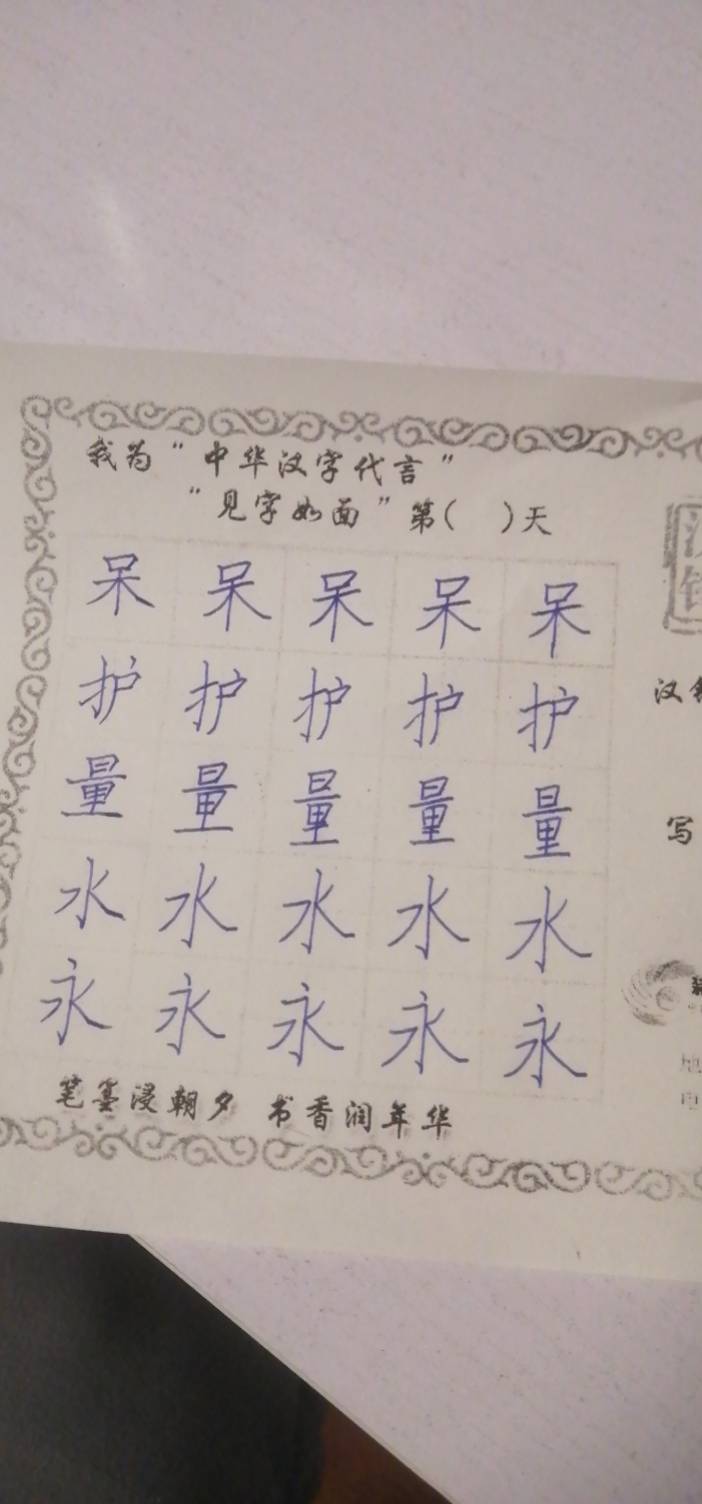 我为“中华汉字代言”
“见字如面”第( )天
呆 呆 呆 呆 呆
护 护 护 护 护
量 量 量 量 量
水 水 水 水 水
永 永 永 永 永
笔墨浸朝夕 书香润年华
汉
写
地
电